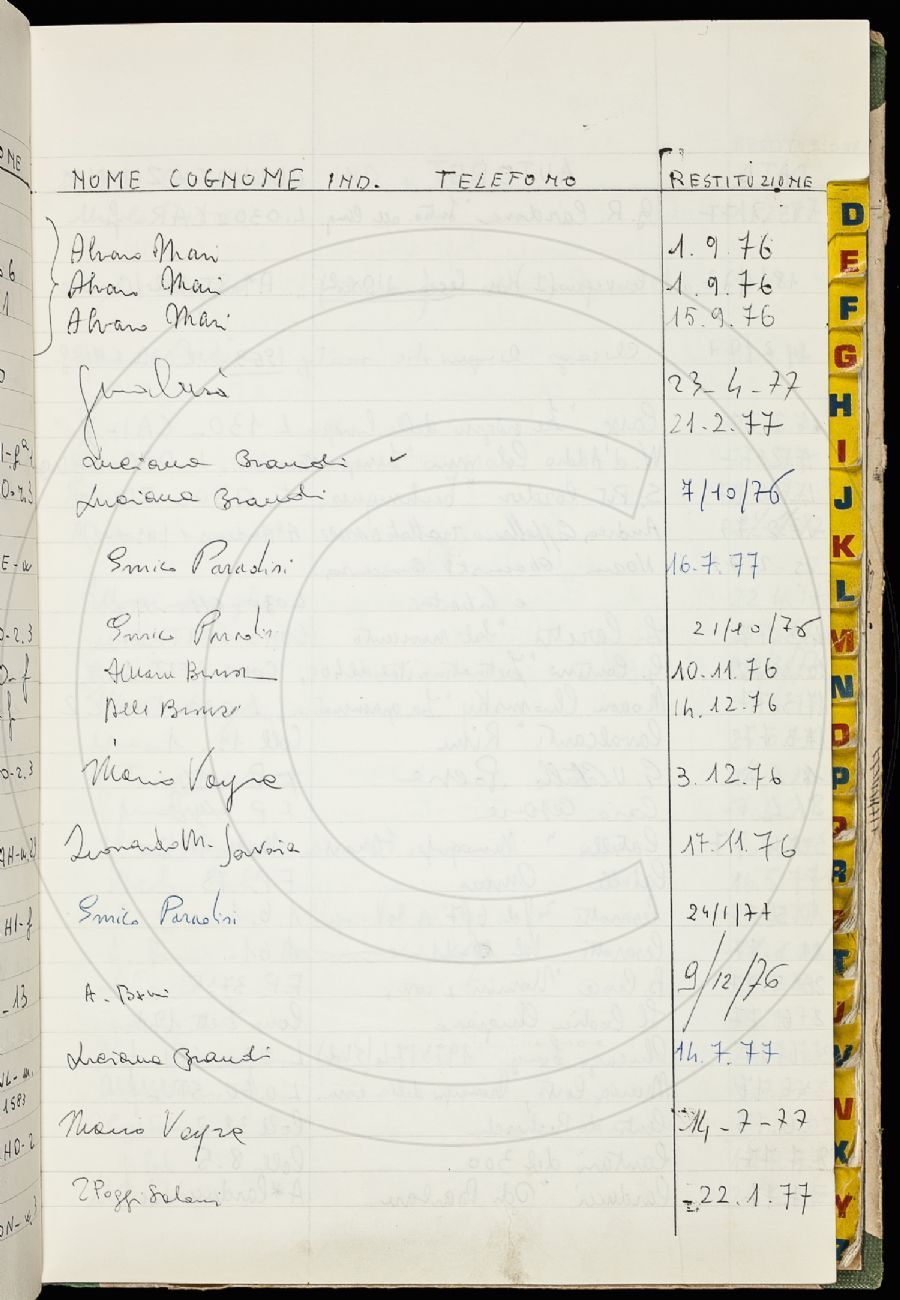 NOME COGNOME IND. TELEFONO RESTITUZIONE
Alvaro Mari 1.9.76
Alvaro Mari 1.9.76
Alvaro Mari 15.9.76
23-4-77
21.2.77
Luciana Brandi ✓
Luciana Brandi 7/10/76
Enrico Paradisi 16.7.77
Enrico Paradisi 21/10/76
10.11.76
14.12.76
Mario Vayra 3.12.76
Leonardo M. Savoia 17.11.76
Enrico Paradisi 24/1/77
A. 9/12/76
Luciana Brandi 14.7.77
Mario Vayra 14-7-77
Poggi Salani 22.1.77
D
E
F
G
H
I
J
K
L
M
N
O
P
Q
R
T
V
X
Y
Z